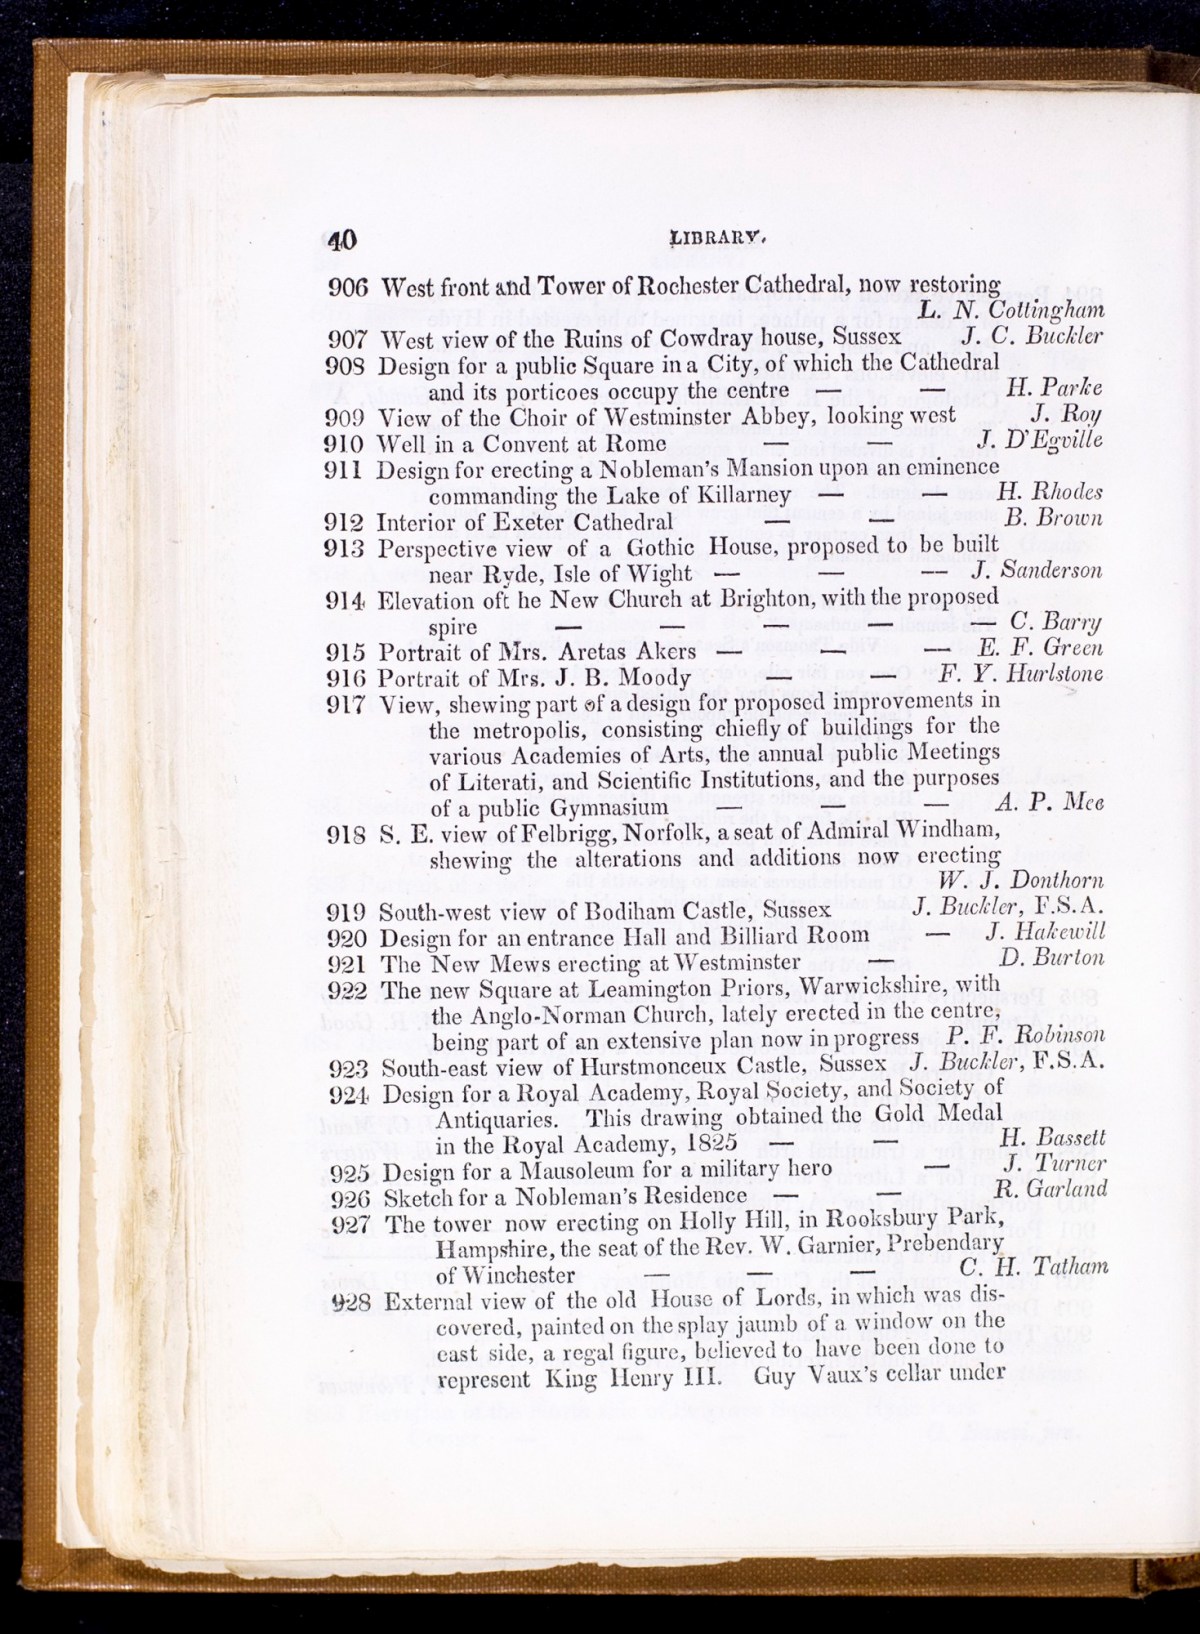 40 LIBRARY.
906 West front and Tower of Rochester Cathedral, now restoring
L. N. Cottingham
907 West view of the Ruins of Cowdray house, Sussex J. C. Buckler
908 Design for a public Square in a City, of which the Cathedral
and its porticoes occupy the centre — — H. Parke
909 View of the Choir of Westminster Abbey, looking west J. Roy
910 Well in a Convent at Rome — — J. D'Egville
911 Design for erecting a Nobleman's Mansion upon an eminence
commanding the Lake of Killarney — — H. Rhodes
912 Interior of Exeter Cathedral — — B. Brown
913 Perspective view of a Gothic House, proposed to be built
near Ryde, Isle of Wight — — — J. Sanderson
914 Elevation oft he New Church at Brighton, with the proposed
spire — — — — — C. Barry
915 Portrait of Mrs. Aretas Akers — — — E. F. Green
916 Portrait of Mrs. J. B. Moody — — F. Y. Hurlstone
917 View, shewing part of a design for proposed improvements in
the metropolis, consisting chiefly of buildings for the
various Academies of Arts, the annual public Meetings
of Literati, and Scientific Institutions, and the purposes
of a public Gymnasium — — — A. P. Mee
918 S. E. view of Felbrigg, Norfolk, a seat of Admiral Windham,
shewing the alterations and additions now erecting
W. J. Donthorn
919 South-west view of Bodiham Castle, Sussex J. Buckler, F.S.A.
920 Design for an entrance Hall and Billiard Room — J. Hakewill
921 The New Mews erecting at Westminster — D. Burton
922 The new Square at Leamington Priors, Warwickshire, with
the Anglo-Norman Church, lately erected in the centre,
being part of an extensive plan now in progress P. F. Robinson
923 South-east view of Hurstmonceux Castle, Sussex J. Buckler, F.S.A.
924 Design for a Royal Academy, Royal Society, and Society of
Antiquaries. This drawing obtained the Gold Medal
in the Royal Academy, 1825 — — H. Bassett
925 Design for a Mausoleum for a military hero — J. Turner
926 Sketch for a Nobleman's Residence — — R. Garland
927 The tower now erecting on Holly Hill, in Rooksbury Park,
Hampshire, the seat of the Rev. W. Garnier, Prebendary
of Winchester — — — C. H. Tatham
928 External view of the old House of Lords, in which was dis-
covered, painted on the splay jaumb of a window on the
east side, a regal figure, believed to have been done to
represent King Henry III. Guy Vaux's cellar under